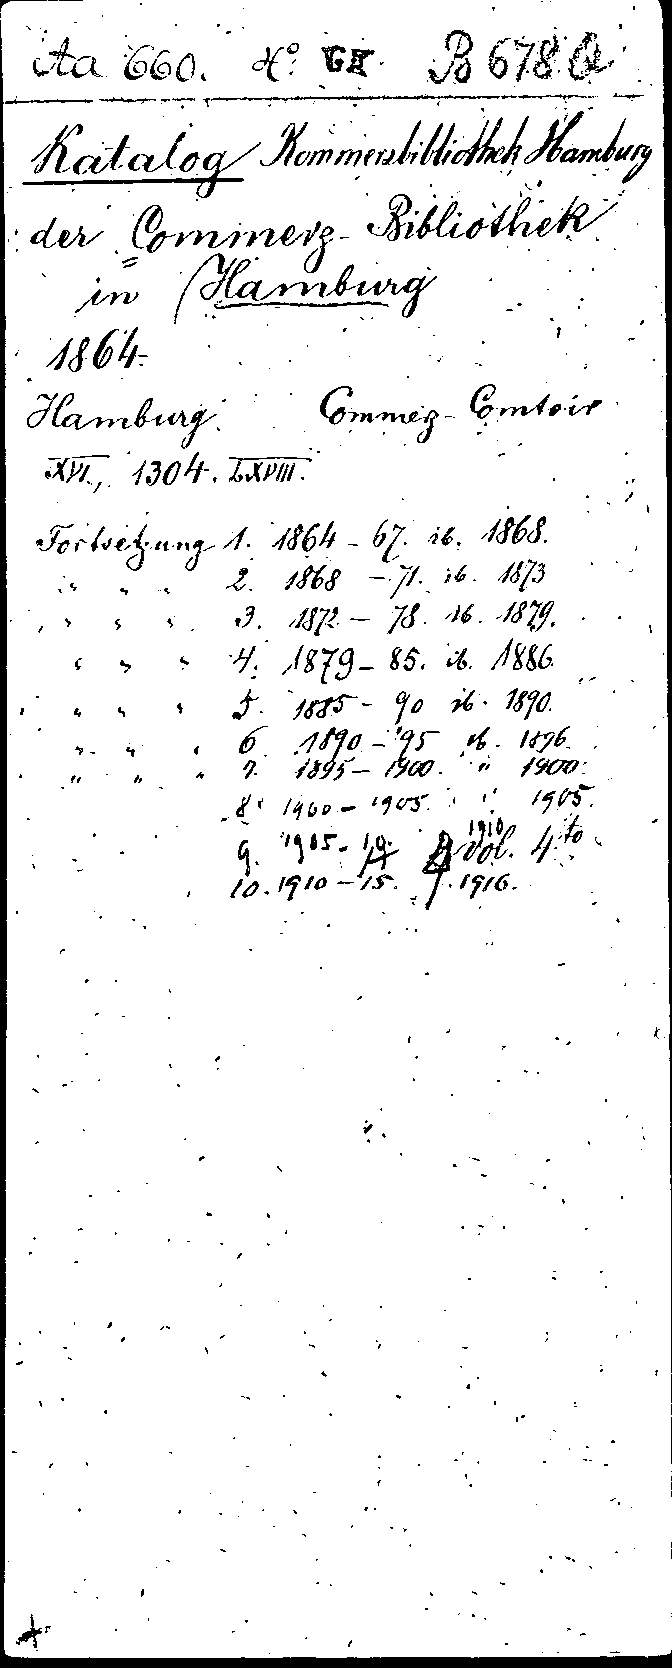 Aa 660. 4º. GK B 678 Q
Katalog Kommerzbibliothek Hamburg
der Commerz-Bibliothek
in Hamburg
1864.
Hamburg. Commerz-Comtoir
XVI., 1304. LXVIII.
Fortsetzung 1. 1864 - 67. ib. 1868.
" " " 2. 1868 - 71. ib. 1873
" " " 3. 1872 - 78. ib. 1879.
" " " 4. 1879 - 85. ib. 1886.
" " " 5. 1885 - 90 ib. 1890.
" " " 6. 1890 - 95 ib. 1896.
" " " 7. 1895 - 1900. " 1900.
8. 1900 - 1905. " 1905.
9. 1905 - 10. 1910 vol. 4to
10. 1910 - 15. 1916.